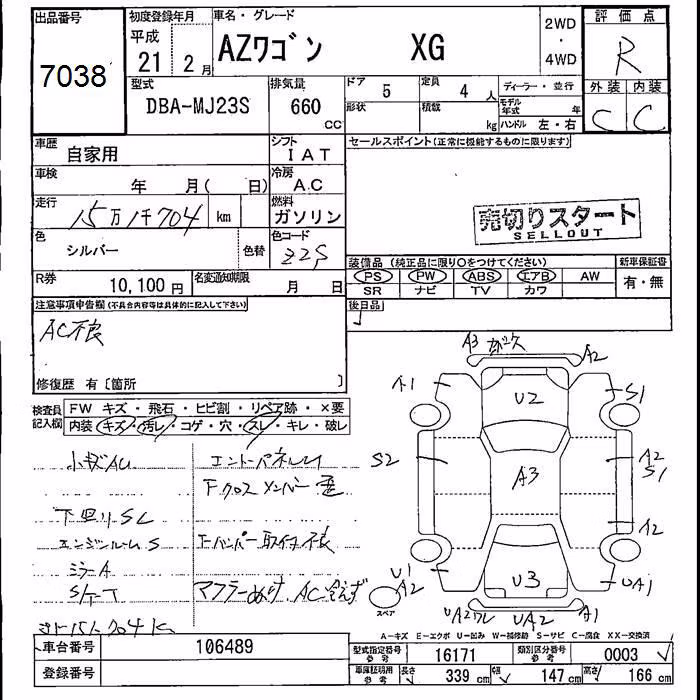 出品番号 初度登録年月 車名・グレード 2WD・4WD 評価点
7038 平成 21 2月 AZワゴン XG R
型式 排気量 ドア 5 定員 4人 ディーラー・並行 外装 内装
DBA-MJ23S 660 CC 形状 積載 kg モデル年式 年 C C
ハンドル 左・右
車歴 自家用 シフト IAT セールスポイント(正常に機能するものに限ります)
車検 年 月( 日) 冷房 A.C
走行 15万1千704 km 燃料 ガソリン 売切りスタート
SELLOUT
色 シルバー 色替 色コード Z2S
装備品(純正品に限り○をつけてください) 新車保証書
PS PW ABS エアB AW 有・無
SR ナビ TV カワ
R券 10,100円 名変通知期限 月 日
注意事項申告欄(不具合内容等は具体的に記入して下さい) 後日品
AC不良
修復歴 有〔箇所 〕
検査員記入欄 FW キズ・飛石・ヒビ割・リペア跡・×要
内装 キズ・汚レ・コゲ・穴・スレ・キレ・破レ
A3 A2
A1 U2 S1
S2 A3 A2
S1
A2
U1
A2 U3 UA1
スペア A1
小キズAU
下回りSL
エンジンルームS
ミラーA
マフラーぬけ、AC冷えず
A-キズ E-エクボ U-凹み W-補修跡 S-サビ C-腐食 XX-交換済
車台番号 106489 型式指定番号 参考 16171 類別区分番号 参考 0003
登録番号 車庫証明用 参考 長さ 339 cm 幅 147 cm 高さ 166 cm